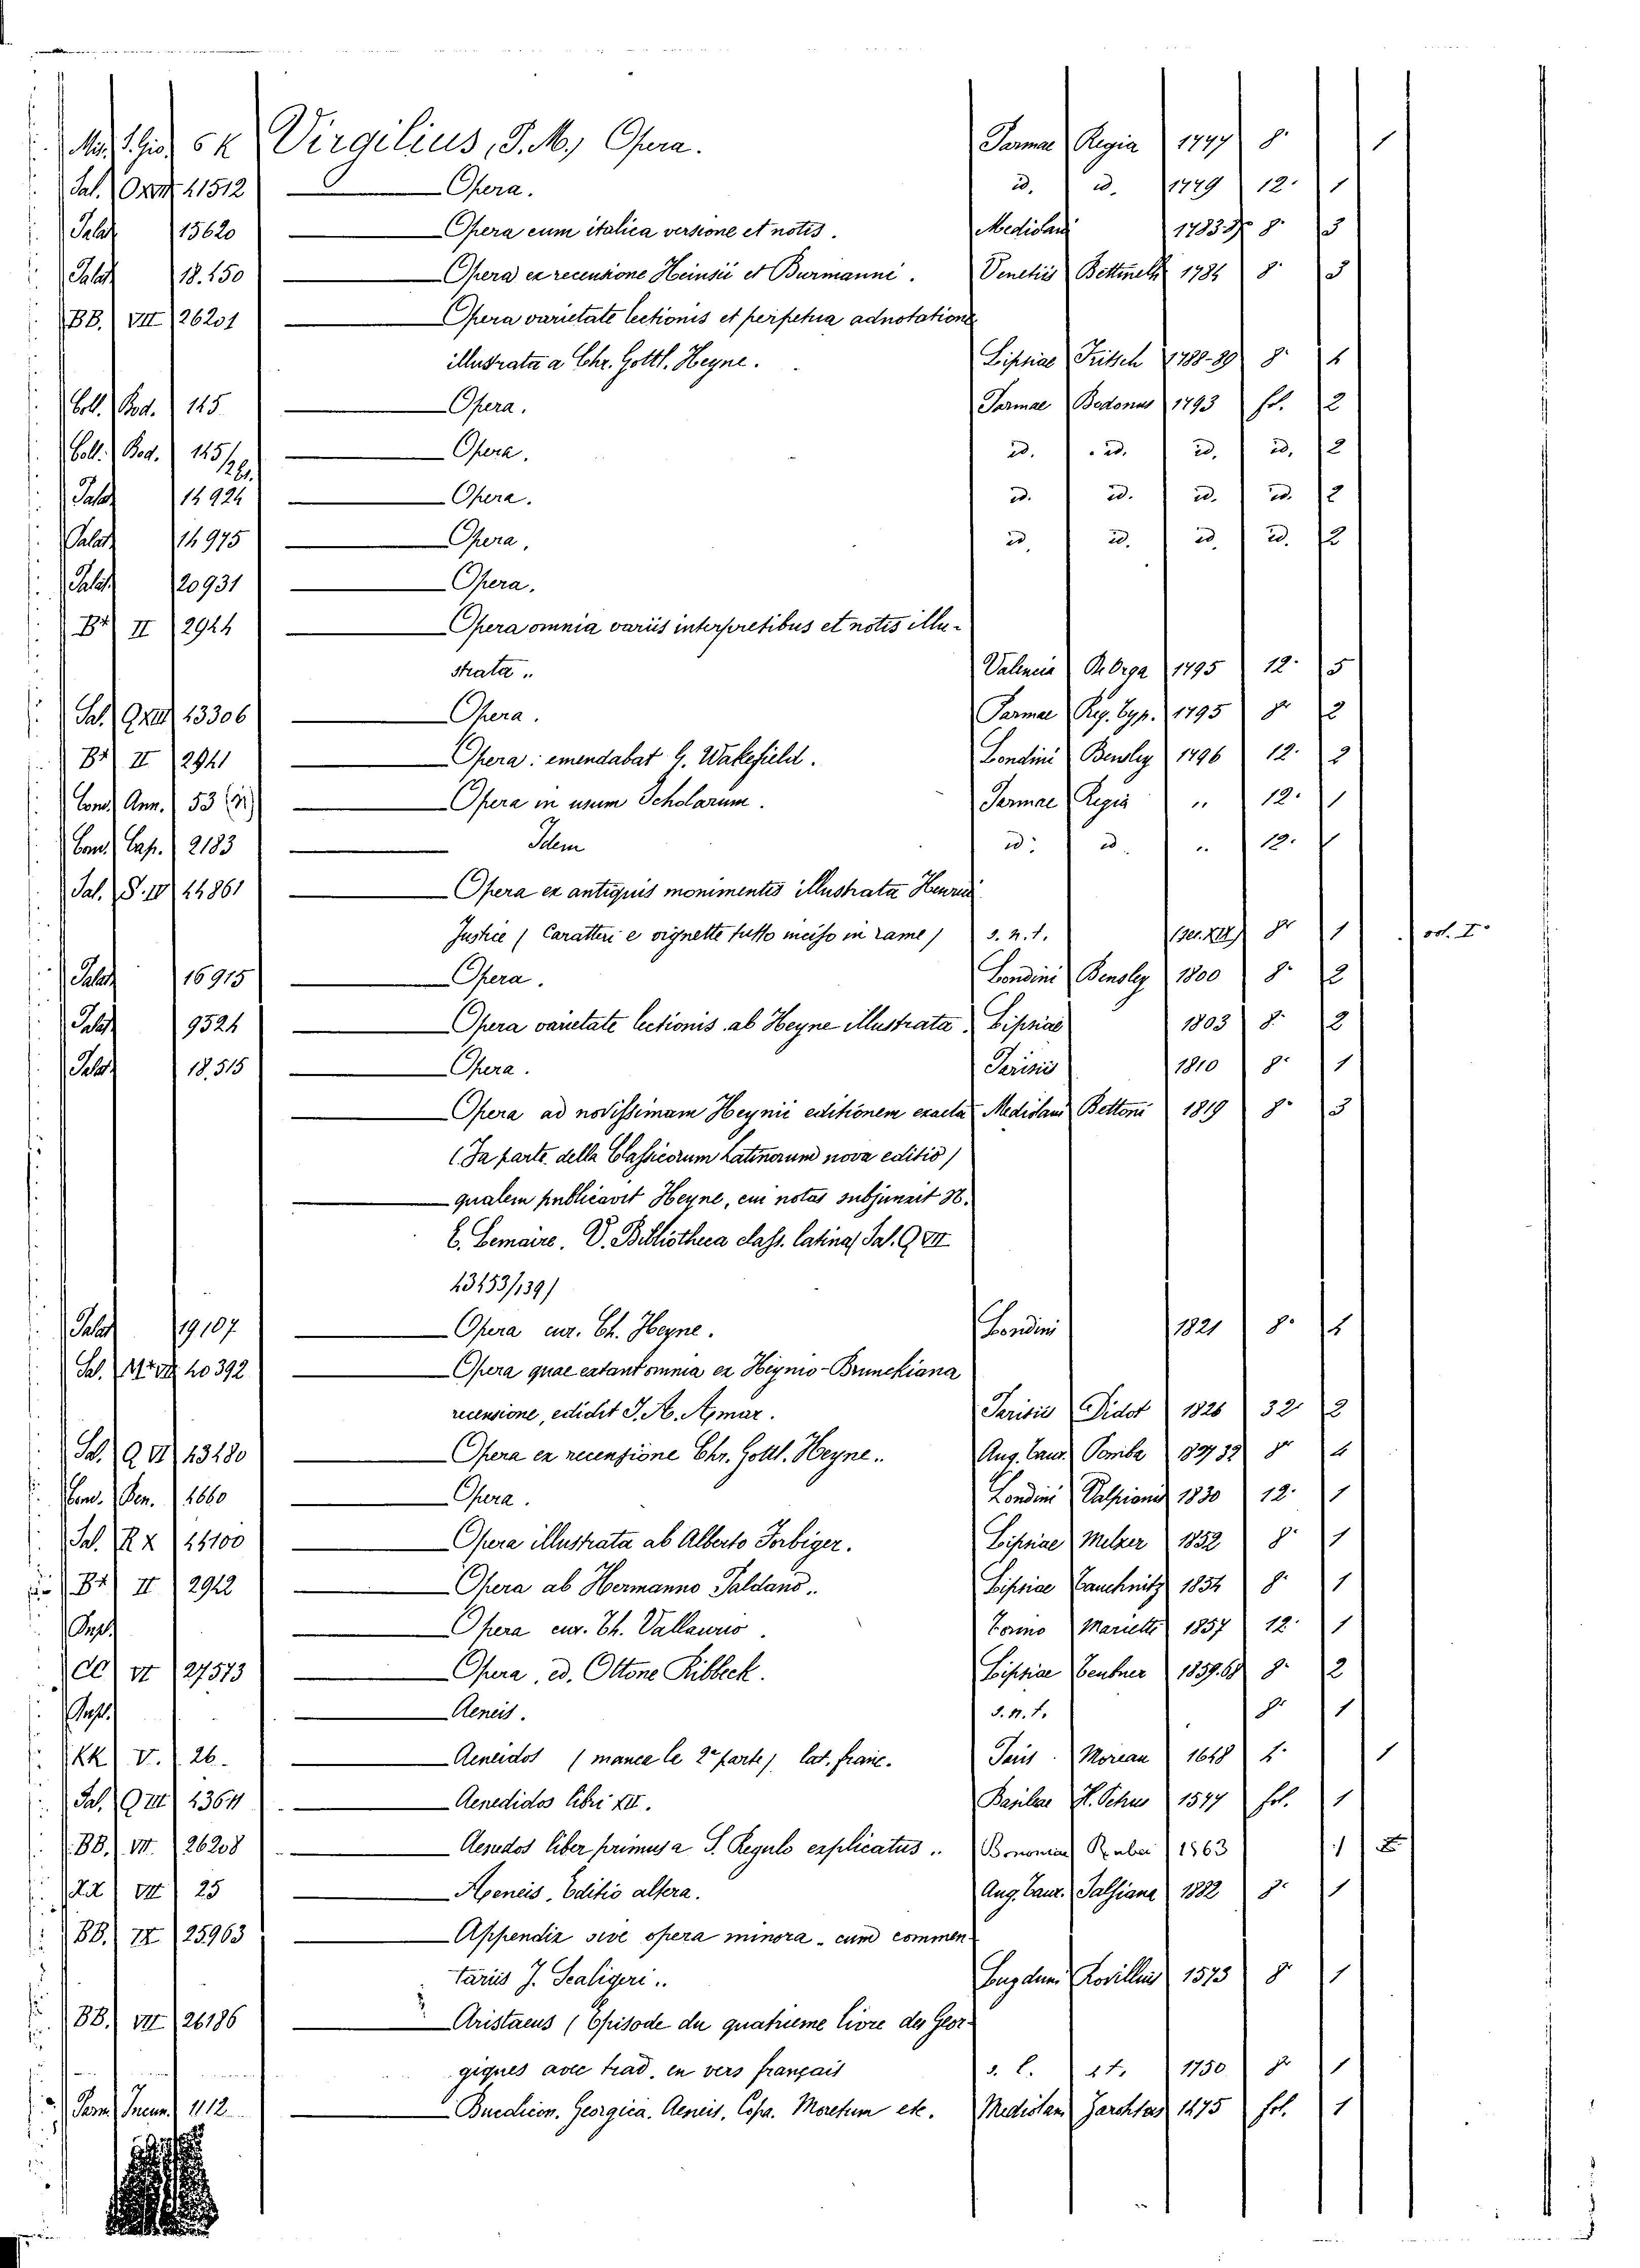 Virgilius, P. M., Opera. Parmae Regia 8° 1
Pal. 11512 — Opera. id. id. 1779 12° 1
Palat 15620 — Opera cum italica versione et notis. Mediolani 8° 3
Palat 18.150 — Opera ex recensione Heinsii et Burmanni. Venetiis Bettinelli 1784 8° 3
BB. VII 26201 — Opera varietate lectionis et perpetua adnotatione
illustrata a Chr. Gottl. Heyne. Lipsiae Fritsch 1788-89 8° 4
Coll. Bod. 145 — Opera. Parmae Bodonus 1793 fol. 2
Coll. Bod. 145/ — Opera. id. id. id. id. 2
Palat 14924 — Opera. id. id. id. id. 2
Palat 14975 — Opera. id. id. id. id. 2
Palat 20931 — Opera.
B* II 2944 — Opera omnia variis interpretibus et notis illu-
strata.. Valencia Orga 1795 12° 5
Pal. 13306 — Opera. Parmae Reg. Typ. 1795 8° 2
B* II 2941 — Opera: emendabat G. Wakefield. Londini Bensley 1796 12° 2
Cons. Ann. 53 — Opera in usum Scholarum. Parmae Regia " 12° 1
Cons. Cap. 2183 — Idem id. id. " 12° 1
Pal. S. IV 14861 — Opera ex antiquis monimentis illustrata Henrici
Justice (Caratteri e vignette tutto inciso in rame) s. n. t. 8° 1 vol. I°
Palat 16915 — Opera. Londini Bensley 1800 8° 2
Palat 9524 — Opera varietate lectionis ab Heyne illustrata. Lipsiae 1803 8° 2
Palat 18.515 — Opera. Parisiis 1810 8° 1
— Opera ad novissimam Heynii editionem exacta Mediolani Bettoni 1819 8° 3
(Fa parte della Classicorum Latinorum nova editio)
— qualem publicavit Heyne, cui notas subjunxit N.
E. Lemaire. V. Bibliotheca class. latina Pal. Q VII
13153/139)
Palat 19107 — Opera cur. Ch. Heyne. Londini 1821 8° 4
Pal. 40392 — Opera quae extant omnia ex Heynio-Brunckiana
recensione, edidit J. A. Amar. Parisiis Didot 1826 32° 2
Pal. Q VI 13180 — Opera ex recensione Chr. Gottl. Heyne.. Aug. Taur. Pomba 8° 4
Cons. Ven. 1660 — Opera. Londini Valpianis 1830 12° 1
Pal. R X 14100 — Opera illustrata ab Alberto Forbiger. Lipsiae Melzer 1852 8° 1
B* II 2942 — Opera ab Hermanno Paldano.. Lipsiae Tauchnitz 1854 8° 1
— Opera cur. Th. Vallaurio. Torino Marietti 1857 12° 1
CC VI 27573 — Opera, ed. Ottone Ribbeck. Lipsiae Teubner 1859.68 8° 2
— Aeneis. s. n. t. 8° 1
KK V. 26. — Aeneidos (manca la 2ª parte) lat. franc. Paris. Moreau 1648 4° 1
Pal. 13611 — Aenedidos libri XII. Basileae H. Petrus 1577 fol. 1
BB. VII. 26208 — Aenedos liber primus a S. Regulo explicatus.. Bononiae Rubei 1563 1
VIII 25 — Aeneis. Editio altera. Aug. Taur. Salesiana 1882 8° 1
BB. IX 25963 — Appendix sive opera minora - cum commen-
tariis J. Scaligeri.. Lugduni Rovillius 1573 8° 1
BB. VII 26186 — Aristaeus (Episode du quatrieme livre des Geor-
giques avec trad. en vers français s. l. s t. 1750 8° 1
Parm. Incun. 1112 — Bucolicon. Georgica. Aeneis. Copa. Moretum etc. Mediolani Zarchtus 1475 fol. 1